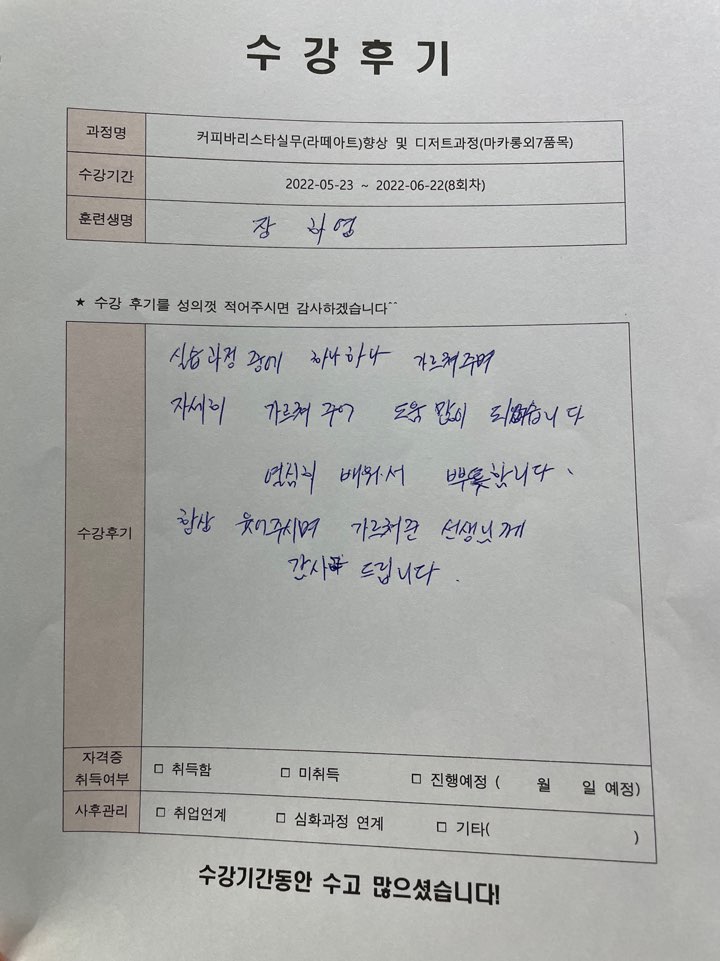 수강후기
과정명 커피바리스타실무(라떼아트)향상 및 디저트과정(마카롱외7품목)
수강기간 2022-05-23 ~ 2022-06-22(8회차)
훈련생명 장 하영
★ 수강 후기를 성의껏 적어주시면 감사하겠습니다^^
실습과정 중에 하나하나 가르쳐주며
자세히 가르쳐 주어 도움 많이 되었습니다
열심히 배워서 뿌듯합니다.
수강후기
항상 웃어주시며 가르쳐준 선생님께
감사 드립니다.
자격증
취득여부 □ 취득함 □ 미취득 □ 진행예정 ( 월 일 예정)
사후관리 □ 취업연계 □ 심화과정 연계 □ 기타( )
수강기간동안 수고 많으셨습니다!